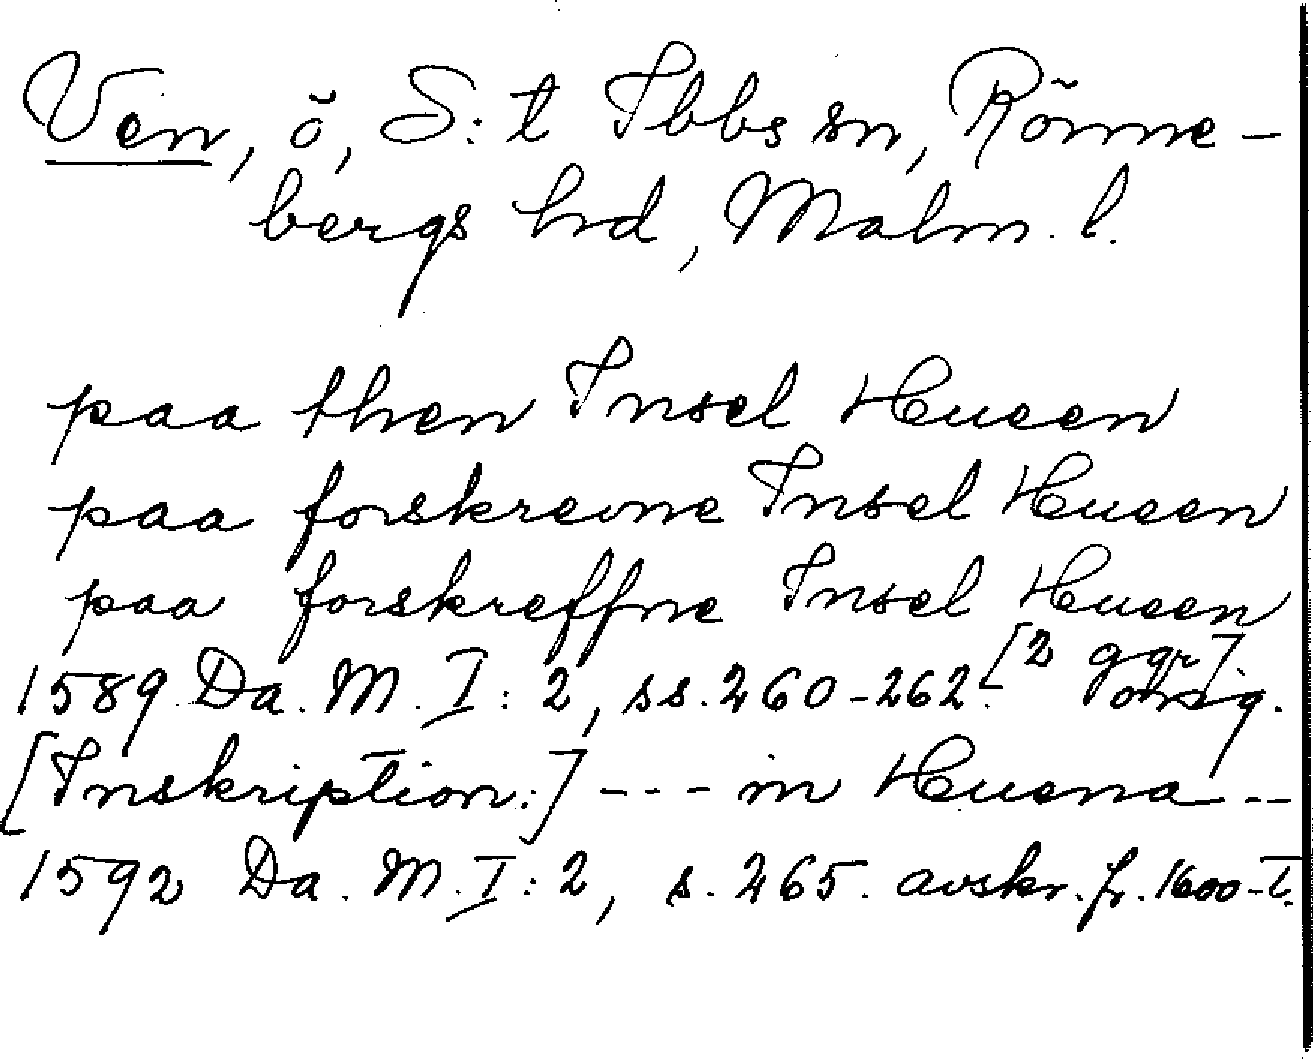 Ven, ö, S:t Ibbs sn, Rönne-
bergs hd, Malm. l.
paa then Insel Hueen
paa forskrevne Insel Hueen
paa forskreffne Insel Hueen
[2 ggr].
1589 Da. M. I:2, ss. 260-262. orig.
[Inskription:] --- in Huena --
1592 Da. M. I:2, s. 265. avskr. fr. 1600-t.